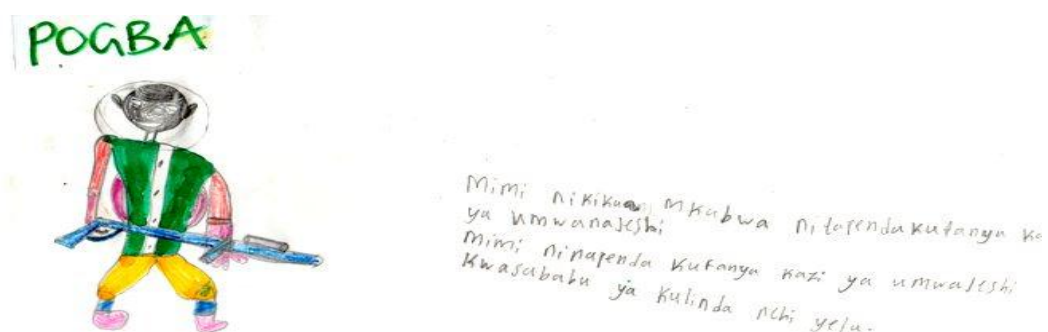 POGBA
Mimi nikikua mkubwa nitapenda kufanya
ya umwanajeshi
Mimi ninapenda kufanya kazi ya umwajeshi
kwasababu ya kulinda nchi yetu.